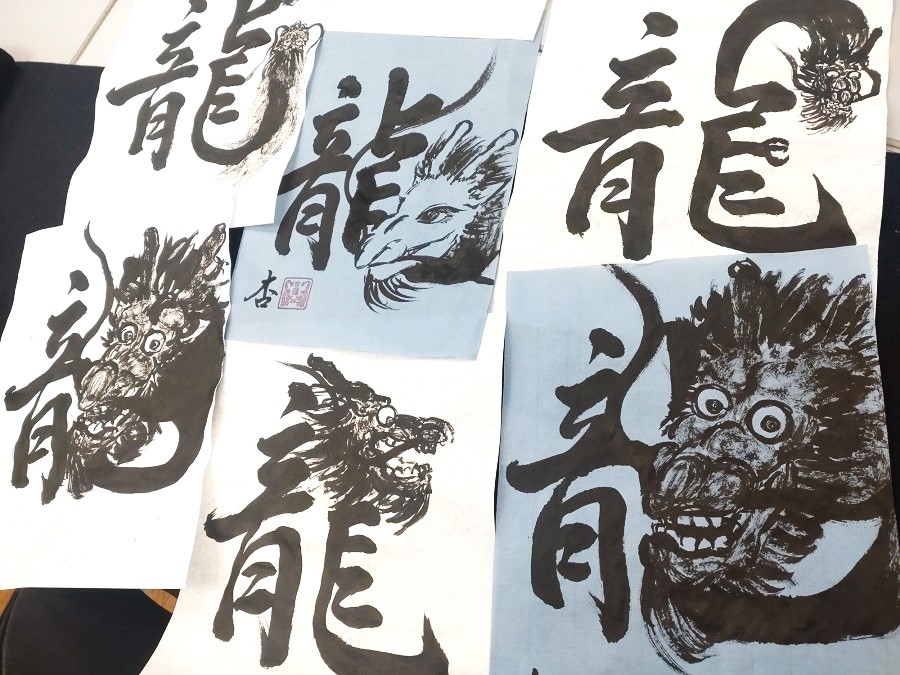 龍
龍
杏
龍
龍
龍
龍